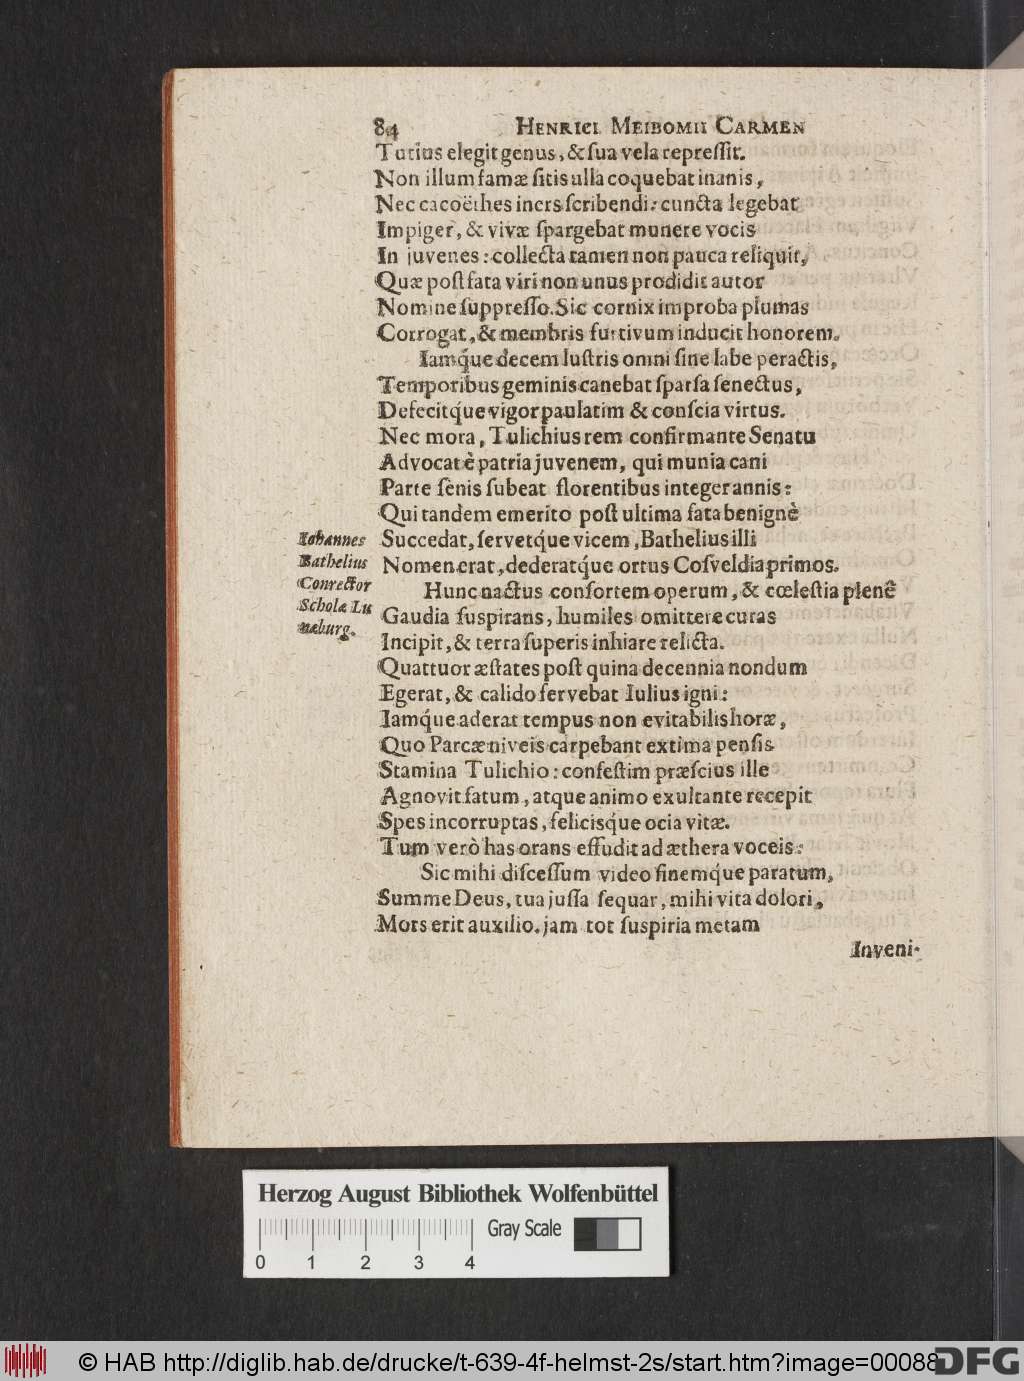 84 HENRICI MEIBOMII CARMEN
Tutius elegit genus, & ſua vela repreſſit.
Non illum famæ ſitis ulla coquebat inanis,
Nec cacoëthes iners ſcribendi: cuncta legebat
Impiger, & vivæ ſpargebat munere vocis
In juvenes: collecta tamen non pauca reliquit,
Quæ poſt fata viri non unus prodidit autor
Nomine ſuppreſſo. Sic cornix improba plumas
Corrogat, & membris furtivum inducit honorem.
Iamq́ue decem luſtris omni ſine labe peractis,
Temporibus geminis canebat ſparſa ſenectus,
Defecitq́ue vigor paulatim & conſcia virtus.
Nec mora, Tulichius rem confirmante Senatu
Advocat è patria juvenem, qui munia cani
Parte ſenis ſubeat florentibus integer annis:
Qui tandem emerito poſt ultima fata benignè
Succedat, ſervetq́ue vicem, Bathelius illi
Nomen erat, dederatq́ue ortus Coſveldia primos.
Iohannes
Bathelius
Conrector
Scholæ Lu
næburg.
Hunc nactus conſortem operum, & cœleſtia plenè
Gaudia ſuſpirans, humiles omittere curas
Incipit, & terra ſuperis inhiare relicta.
Quattuor æſtates poſt quina decennia nondum
Egerat, & calido fervebat Iulius igni:
Iamq́ue aderat tempus non evitabilis horæ,
Quo Parcæ niveis carpebant extima penſis
Stamina Tulichio: confeſtim præſcius ille
Agnovit fatum, atque animo exultante recepit
Spes incorruptas, felicisq́ue ocia vitæ.
Tum verò has orans effudit ad æthera voceis:
Sic mihi diſceſſum video finemq́ue paratum,
Summe Deus, tua juſſa ſequar, mihi vita dolori,
Mors erit auxilio. jam tot ſuſpiria metam
Inveni-
Herzog August Bibliothek Wolfenbüttel
Gray Scale
0 1 2 3 4
© HAB http://diglib.hab.de/drucke/t-639-4f-helmst-2s/start.htm?image=00088
DFG